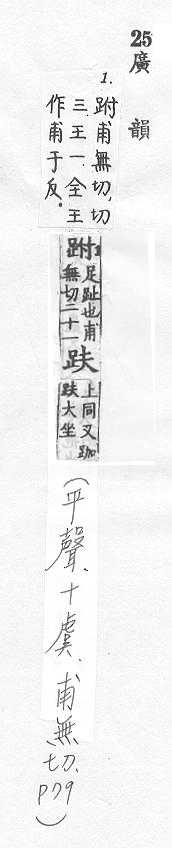 25
廣韻
1.
跗甫無切,切
三、王一、全王
作甫于反。
跗足趾也甫
無切二十一
跌
上同又跏
跌大坐
(平聲、十虞、甫無切、P79)